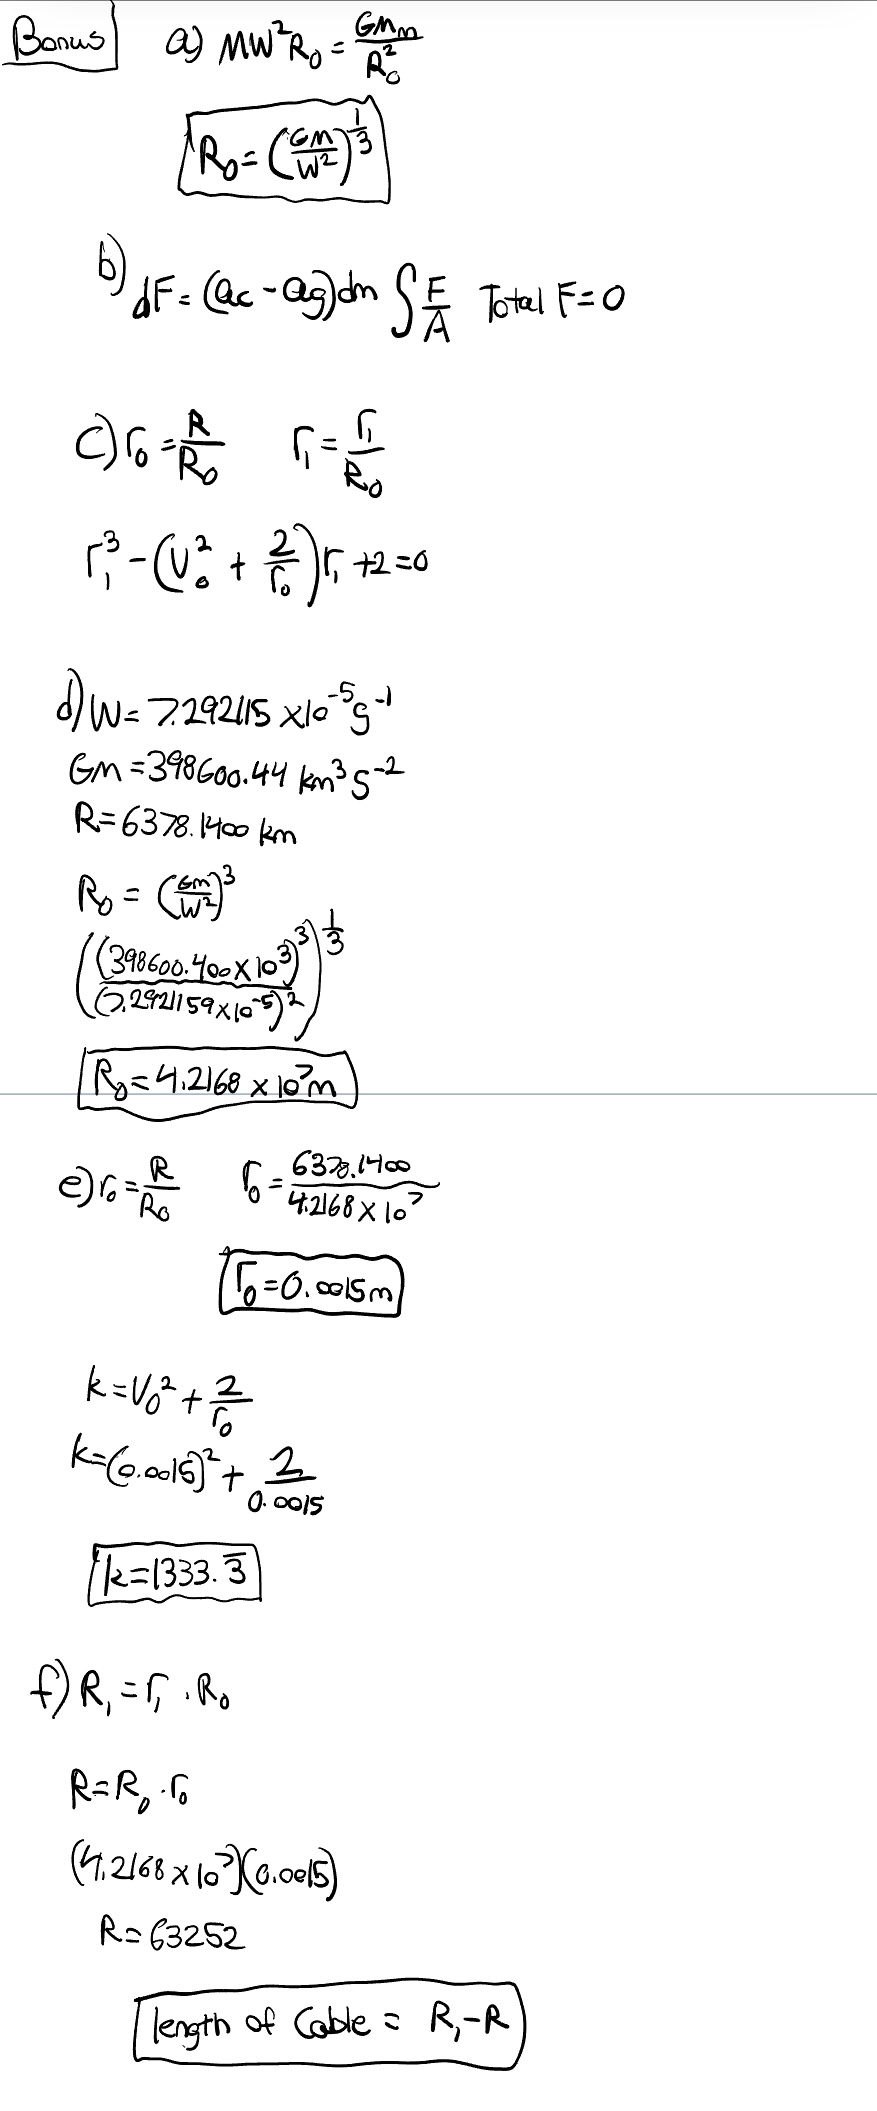 Bonus a) MW²R₀ = GMm/R₀²
R₀ = (GM/W²)^(1/3)
b) dF = (ac - ag)dm ∫ F/A Total F=0
c) r₀ = R/R₀ r₁ = r₁/R₀
r₁³ - (V₀² + 2/r₀)r₁ +2=0
d) W= 7.292115 x10⁻⁵ s⁻¹
GM = 398600.44 km³ s⁻²
R= 6378.1400 km
R₀ = (GM/W²)³
((398600.400 x 10³)³/(7.2921159 x 10⁻⁵)²)^(1/3)
R₀ = 4.2168 x 10⁷ m
e) r₀ = R/R₀ r₀ = 6378.1400/4.2168 x 10⁷
r₀ = 0.0015m
k = V₀² + 2/r₀
k= (0.0015)² + 2/0.0015
k = 1333.3̅
f) R₁ = r₁ · R₀
R = R₀ · r₀
(4.2168 x 10⁷)(0.0015)
R = 63252
length of Cable = R₁-R